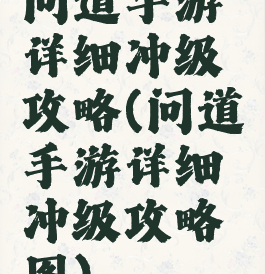 问道手游
详细冲级
攻略(问道
手游详细
冲级攻略
图)